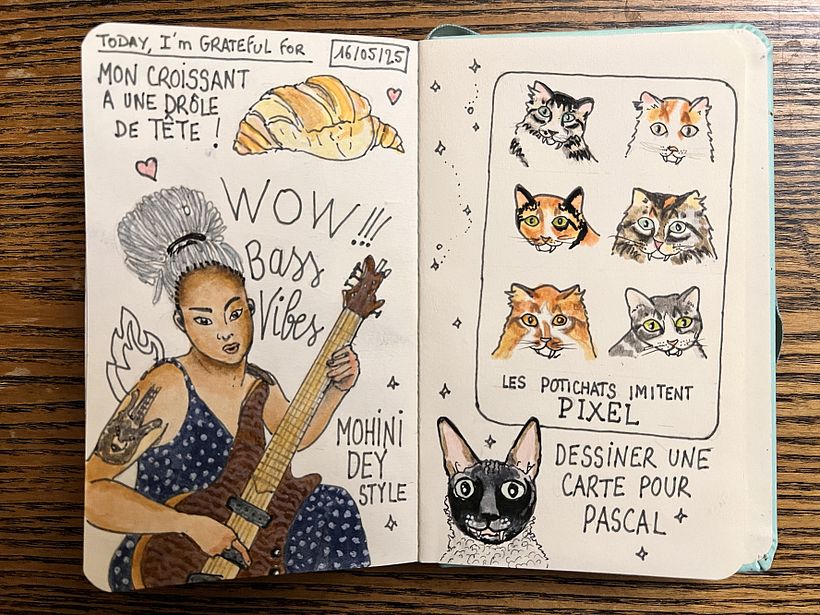 TODAY, I'm GRATEFUL FOR
16/05/25
MON CROISSANT
A UNE DRÔLE
DE TÊTE !
WOW!!!
Bass
Vibes
MOHINI
DEY
STYLE
LES POTICHATS IMITENT
PIXEL
DESSINER UNE
CARTE POUR
PASCAL